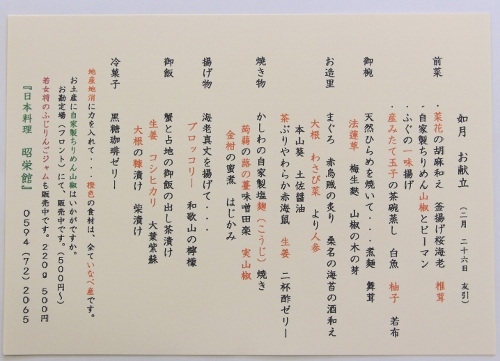 如月 お献立 (二月 二十六日 友引)
前菜 ・菜花の胡麻和え 釜揚げ桜海老 椎茸
・自家製ちりめん山椒とピーマン
・ふぐの一味揚げ
・産みたて玉子の茶碗蒸し 白魚 柚子 若布
御椀 天然ひらめを焼いて・・・煮麺 舞茸
法蓮草 梅生麩 山椒の木の芽
お造里 まぐろ 赤烏賊の炙り 桑名の海苔の酒和え
大根 わさび菜 より人参
本山葵 土佐醤油
茶ぶりやわらか赤海鼠 生姜 二杯酢ゼリー
焼き物 かしわの自家製塩麹(こうじ)焼き
蒟蒻の蕗の薹味噌田楽 実山椒
金柑の蜜煮 はじかみ
揚げ物 海老真丈を揚げて・・・
ブロッコリー 和歌山の檸檬
御飯 蟹と占地の御飯の出し茶漬け
生姜 コシヒカリ 大葉紫蘇
大根の糠漬け 柴漬け
冷菓子 黒糖珈琲ゼリー
地産地消に力を入れて・・・橙色の食材は、全ていなべ産です。
お土産に自家製ちりめん山椒はいかがですか。
お勘定場(フロント)にて、販売中です。(600円~)
若女将のふじりんごジャムも販売中です。220g 500円
『日本料理 昭栄館』 0594(72)2065